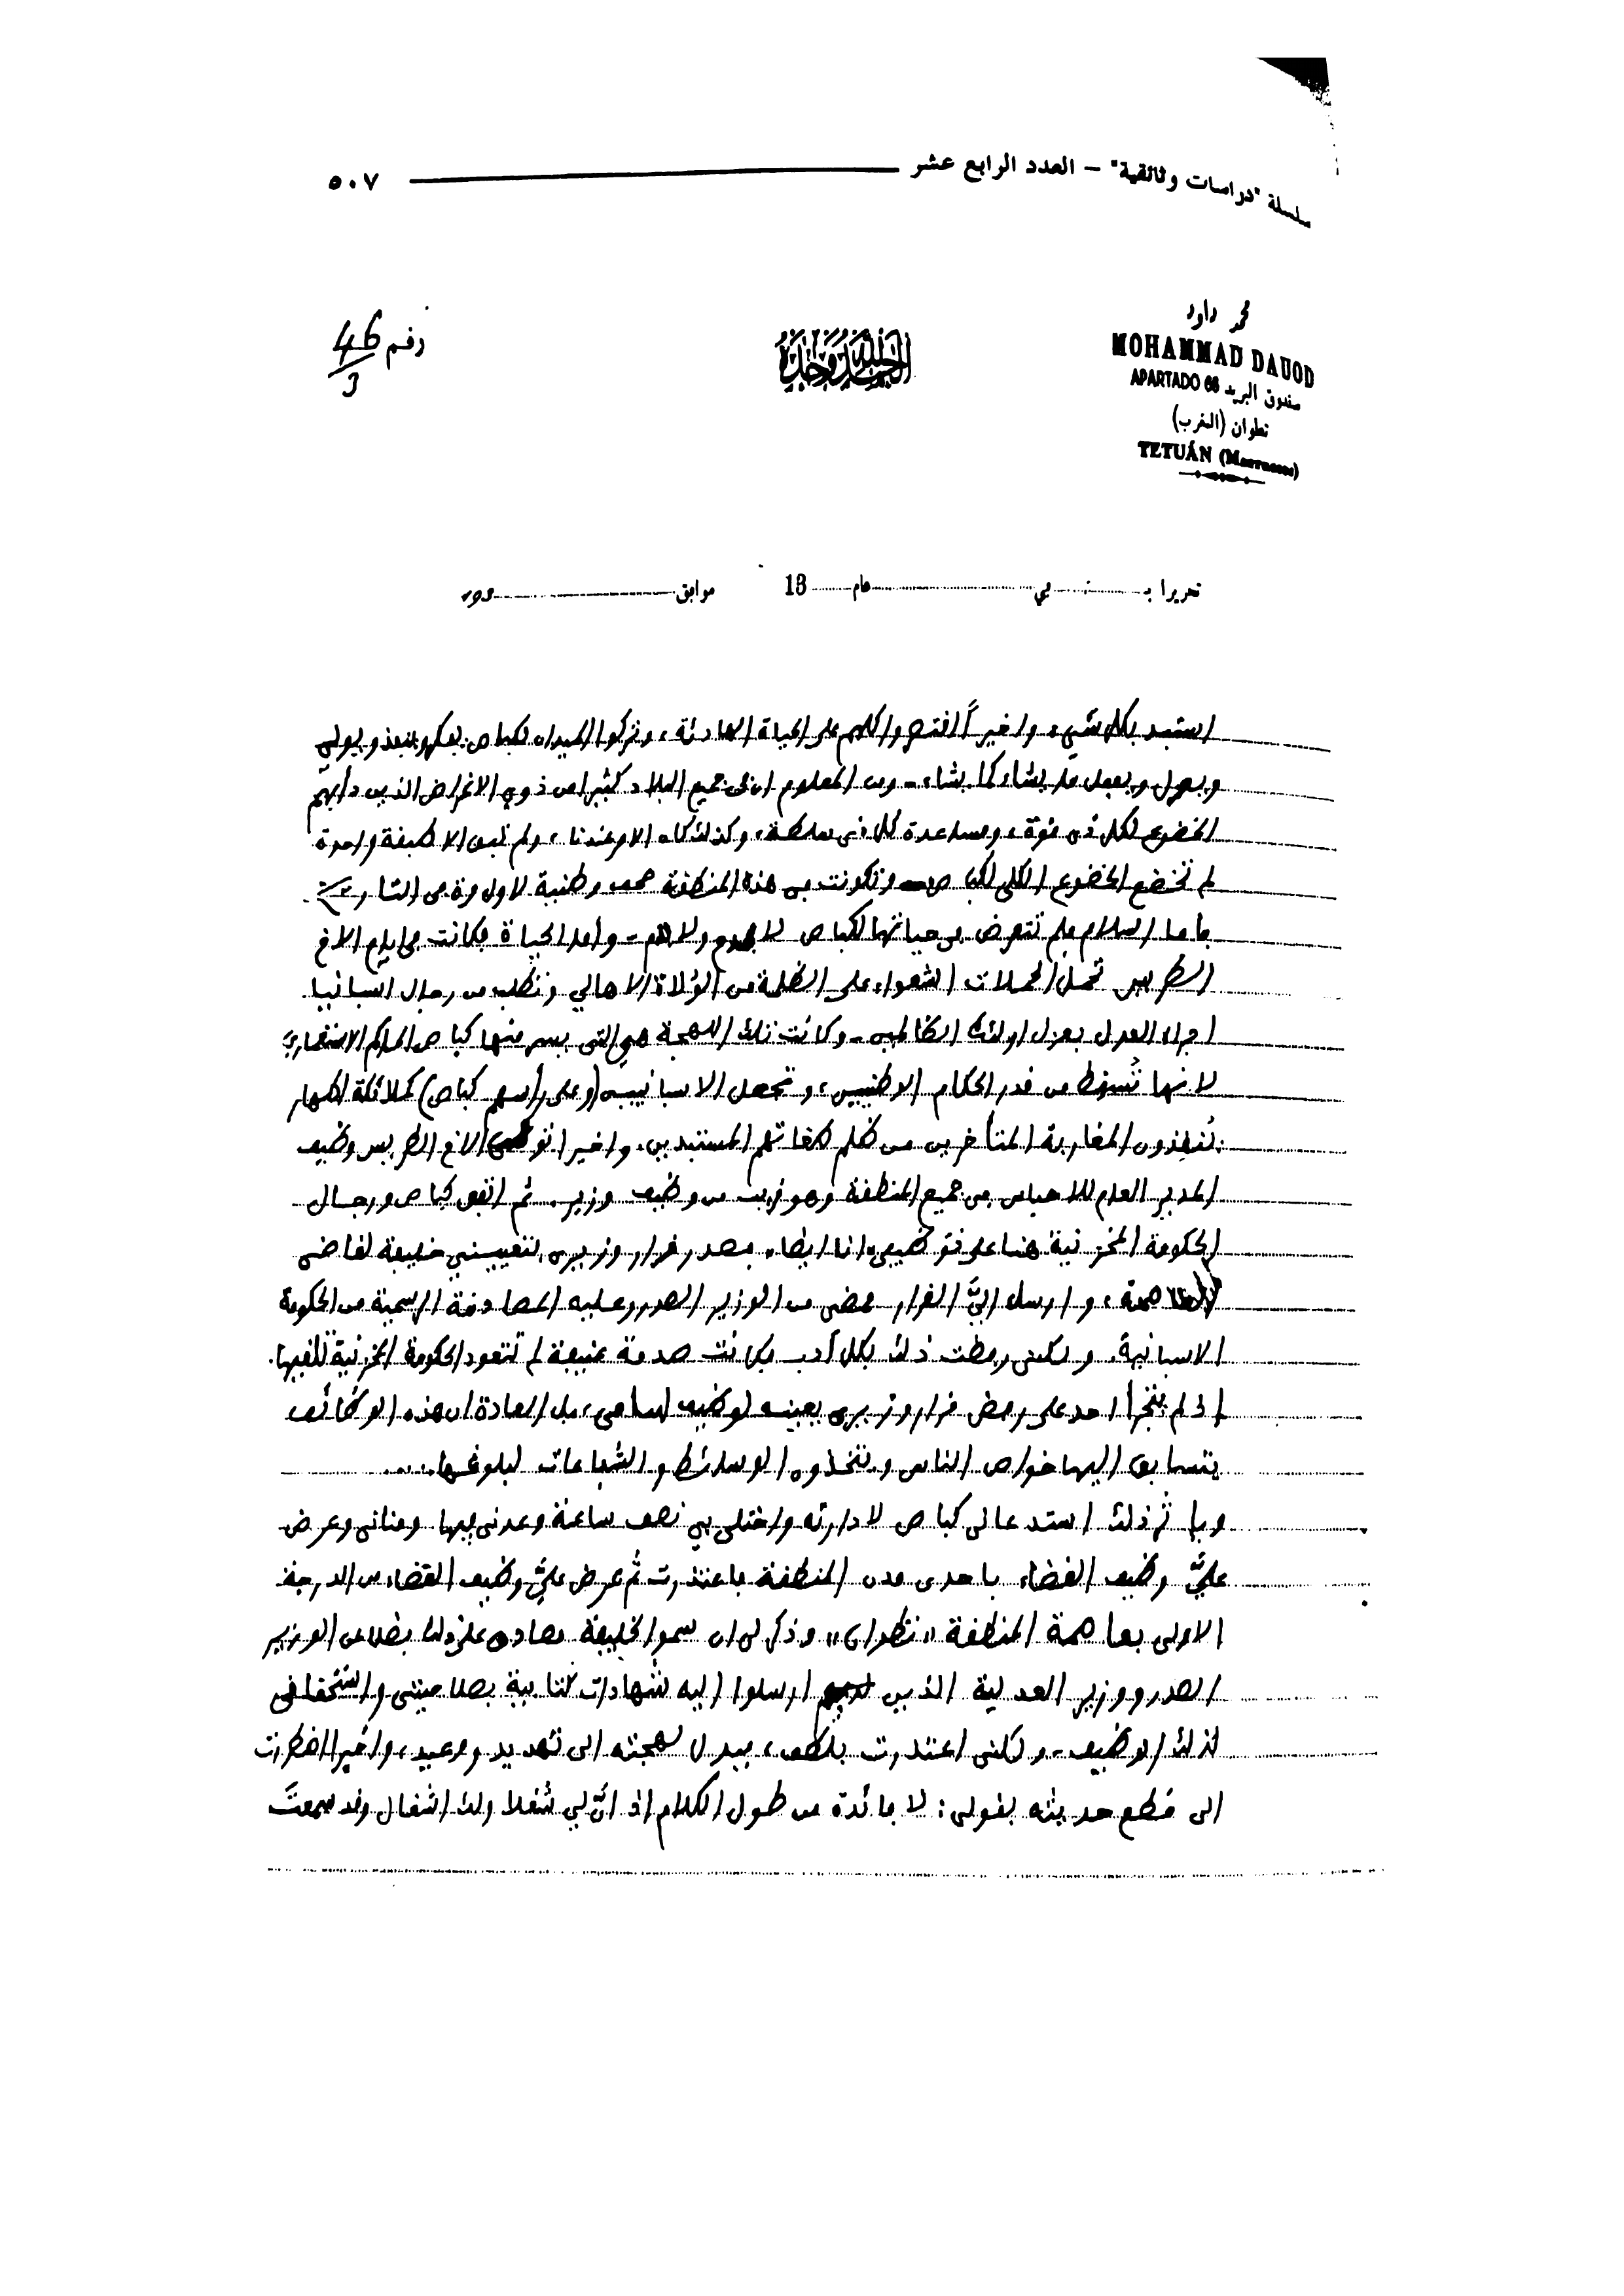 سلسلة "دراسات وثائقية" – العدد الرابع عشر ٥٠٧
محمد داود
MOHAMMAD DAUOD
APARTADO 66 صندوق البريد
تطوان (المغرب)
TETUÁN (Marruecos)
الحمد لله وحده
رقم 46/3
تحريرا بـ في عام 13 موافق
استبد بكل شيء، واخيراً اقتصروا كلهم على الحياة الهادئة، وتركوا الميدان لكباص يفكر وينفذ ويولي
ويعزل ويعمل ما يشاء كما يشاء - ومن المعلوم ان في جميع البلاد كثيرا من ذوي الاغراض الذين دأبهم
الخضوع لكل ذي قوة، ومساعدة كل ذي سلطة، وكذلك كان الامر عندنا، ولم تبق الا طبقة واحدة
لم تخضع الخضوع الكلي لكباص وتكونت في هذه المنطقة صحف وطنية لاول مرة في التاريخ.
فاما السلام فلم تتعرض في حياتها لكباص لا بمدح ولا بذم - وأما الحياة فكانت في ايام الاخ
الطريس تحمل الحملات الشعواء على الظلمة من الولاة الاهالي وتطلب من رجال اسبانيا
اجراء العدل بعزل اولئك الظالمين - وكانت تلك اللهجة هي التي يسر منها كباص الحاكم الاستعماري
لانها تُسقط من قدر الحكام الوطنيين، وتجعل الاسبانيين (وعلى رأسهم كباص) كملائكة اطهار
يُنقذون المغاربة المتأخرين من ظلم طغاتهم المستبدين. واخيرا تولى الاخ الطريس وظيف
المدير العام للاحباس في جميع المنطقة وهو قريب من وظيف وزير. ثم اتفق كباص ورجال
الحكومة المخزنية هنا على توظيفي انا ايضا، فصدر قرار وزيري بتعييني خليفة لقاضي
العاصمة، وارسل اليَّ القرار ممضى من الوزير الصدر وعليه المصادقة الرسمية من الحكومة
الاسبانية. ولكنى رفضت ذلك بكل أدب فكانت صدمة عنيفة لم تتعود الحكومة المخزنية تلقيها.
إذ لم يتجرأ احد على رفض قرار وزيري يعينه لوظيف سامي، بل العادة ان هذه الوظائف
يتسابق اليها خواص الناس ويتخذون الوسائط والشفاعات لبلوغها...
وبإثر ذلك استدعاني كباص لادارته واختلى بي نصف ساعة وعدني فيها ومناني وعرض
عليَّ وظيف القضاء باحدى مدن المنطقة فاعتذرت ثم عرض عليَّ وظيف القضاء من الدرجة
الاولى بعاصمة المنطقة «تطوان» وذكر لي ان سمو الخليفة مصادق على ذلك فضلا عن الوزير
الصدر ووزير العدلية الذين ارسلوا اليه شهادات كتابية بصلاحيتي واستحقاقي
لذلك الوظيف - ولكنى اعتذرت بلطف، فبدل لهجته الى تهديد ووعيد، واخيرا اضطررت
الى قطع حديثه بقولي: لا فائدة من طول الكلام اذ انَّ لي شغلا ولك اشغال وقد سمعتَ